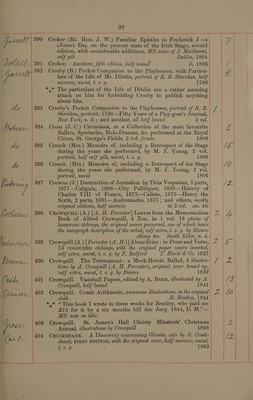 29
Jarrett 390 Croker (Rt. Hon. J. W.) Familiar Epistles to Frederick J—s
(Jones) Esq. on the present state of the Irish Stage, second
edition, with considerable additions, MS. notes of J. Maidment,
calf gilt Dublin, 1804 7
391 Croker. Another, fifth edition, half bound ib. 1806 1
Jarrett 392 Crosby (B.) Pocket Companion to the Playhouses, with Particu-
lars of the Life of Mr. Dibdin, portrait of R. B. Sheridan, half
morocco, uncut, t. e. g. 1796 8
*** The particulars of the Life of Dibdin are a rather amusing
attack on him for forbidding Crosby to publish anything
about him.
393 Crosby's Pocket Companion to the Playhouses, portrait of R. B.
Sheridan, portrait, 1796—Fifty Years of a Play-goer's Journal,
New York, n. d.; and another, all half bound 3 vol.
394 Cross (J. C.) Circusiana, or a Collection of the most favourite
Ballets, Spectacles, Melo-Dramas, &c. performed at the Royal
Circus, St. George's Fields, 2 vol. frontispiece 1809
395 Crouch (Mrs.) Memoirs of, including a Retrospect of the Stage
during the years she performed, by M. J. Young, 2 vol.
portrait, half calf gilt, uncut, t. e. g. 1806 15
396 Crouch (Mrs.) Memoirs of, including a Retrospect of the Stage
during the years she performed, by M. J. Young, 2 vol.
portrait, uncut 1806 18
Pickering 397 Crowne (J.) Destruction of Jerusalem by Titus Vespasian, 2 parts,
1677—Caligula, 1698—City Politiques, 1688—History of
Charles VIII. of France, 1672—Calisto, 1675—Henry the
Sixth, 2 parts, 1681—Andromache, 1675; and others, mostly
original editions, half morocco in 2 vol. sm. 4to 12
398 CROWQUILL (A.) [A. H. Forrester] Leaves from the Memorandum
Book of Alfred Crowquill, 4 Nos. in 1 vol. 16 plates of
humorous etchings, the original covers preserved, one of which bears
the autograph inscription of the artist, calf extra, t. e. g. by Riviere
oblong 4to. Smith Elder, n. d. 4
399 Crowquill (A.) [Forrester (A. H.)] Absurdities: in Prose and Verse,
13 COLOURED etchings, with the original paper cover inserted,
calf extra, uncut, t. e. g. by F. Bedford T. Hurst & Co. 1827
400 Crowquill. The Tournament: a Mock-Heroic Ballad, 8 illustra-
tions by A. Crowquill (A. H. Forrester), original cover bound up,
calf extra, uncut, t. e. g. by Riviere 1839 1 2
Cash 401 Crowquill. Vauxhall Papers, edited by A. Bunn, illustrated by A.
Crowquill, half bound 1841 1
Spencer 402 Crowquill. Comic Arithmetic, numerous illustrations, in the original
cloth R. Bentley, 1844 2
*** "This book I wrote in three weeks for Bentley, who paid me
£75 for it by a six months bill due Jany. 1844, D. M."—
MS. note on title.
403 Crowquill. St. James's Hall Christy Minstrels' Christmas
Annual, illustrations by Crowquill 1868 2
404 CRUIKSHANK. A Discovery concerning Ghosts, cuts by G. Cruik-
shank, FIRST EDITION, with the original cover, half morocco, uncut,
t. e. g. 1863 12